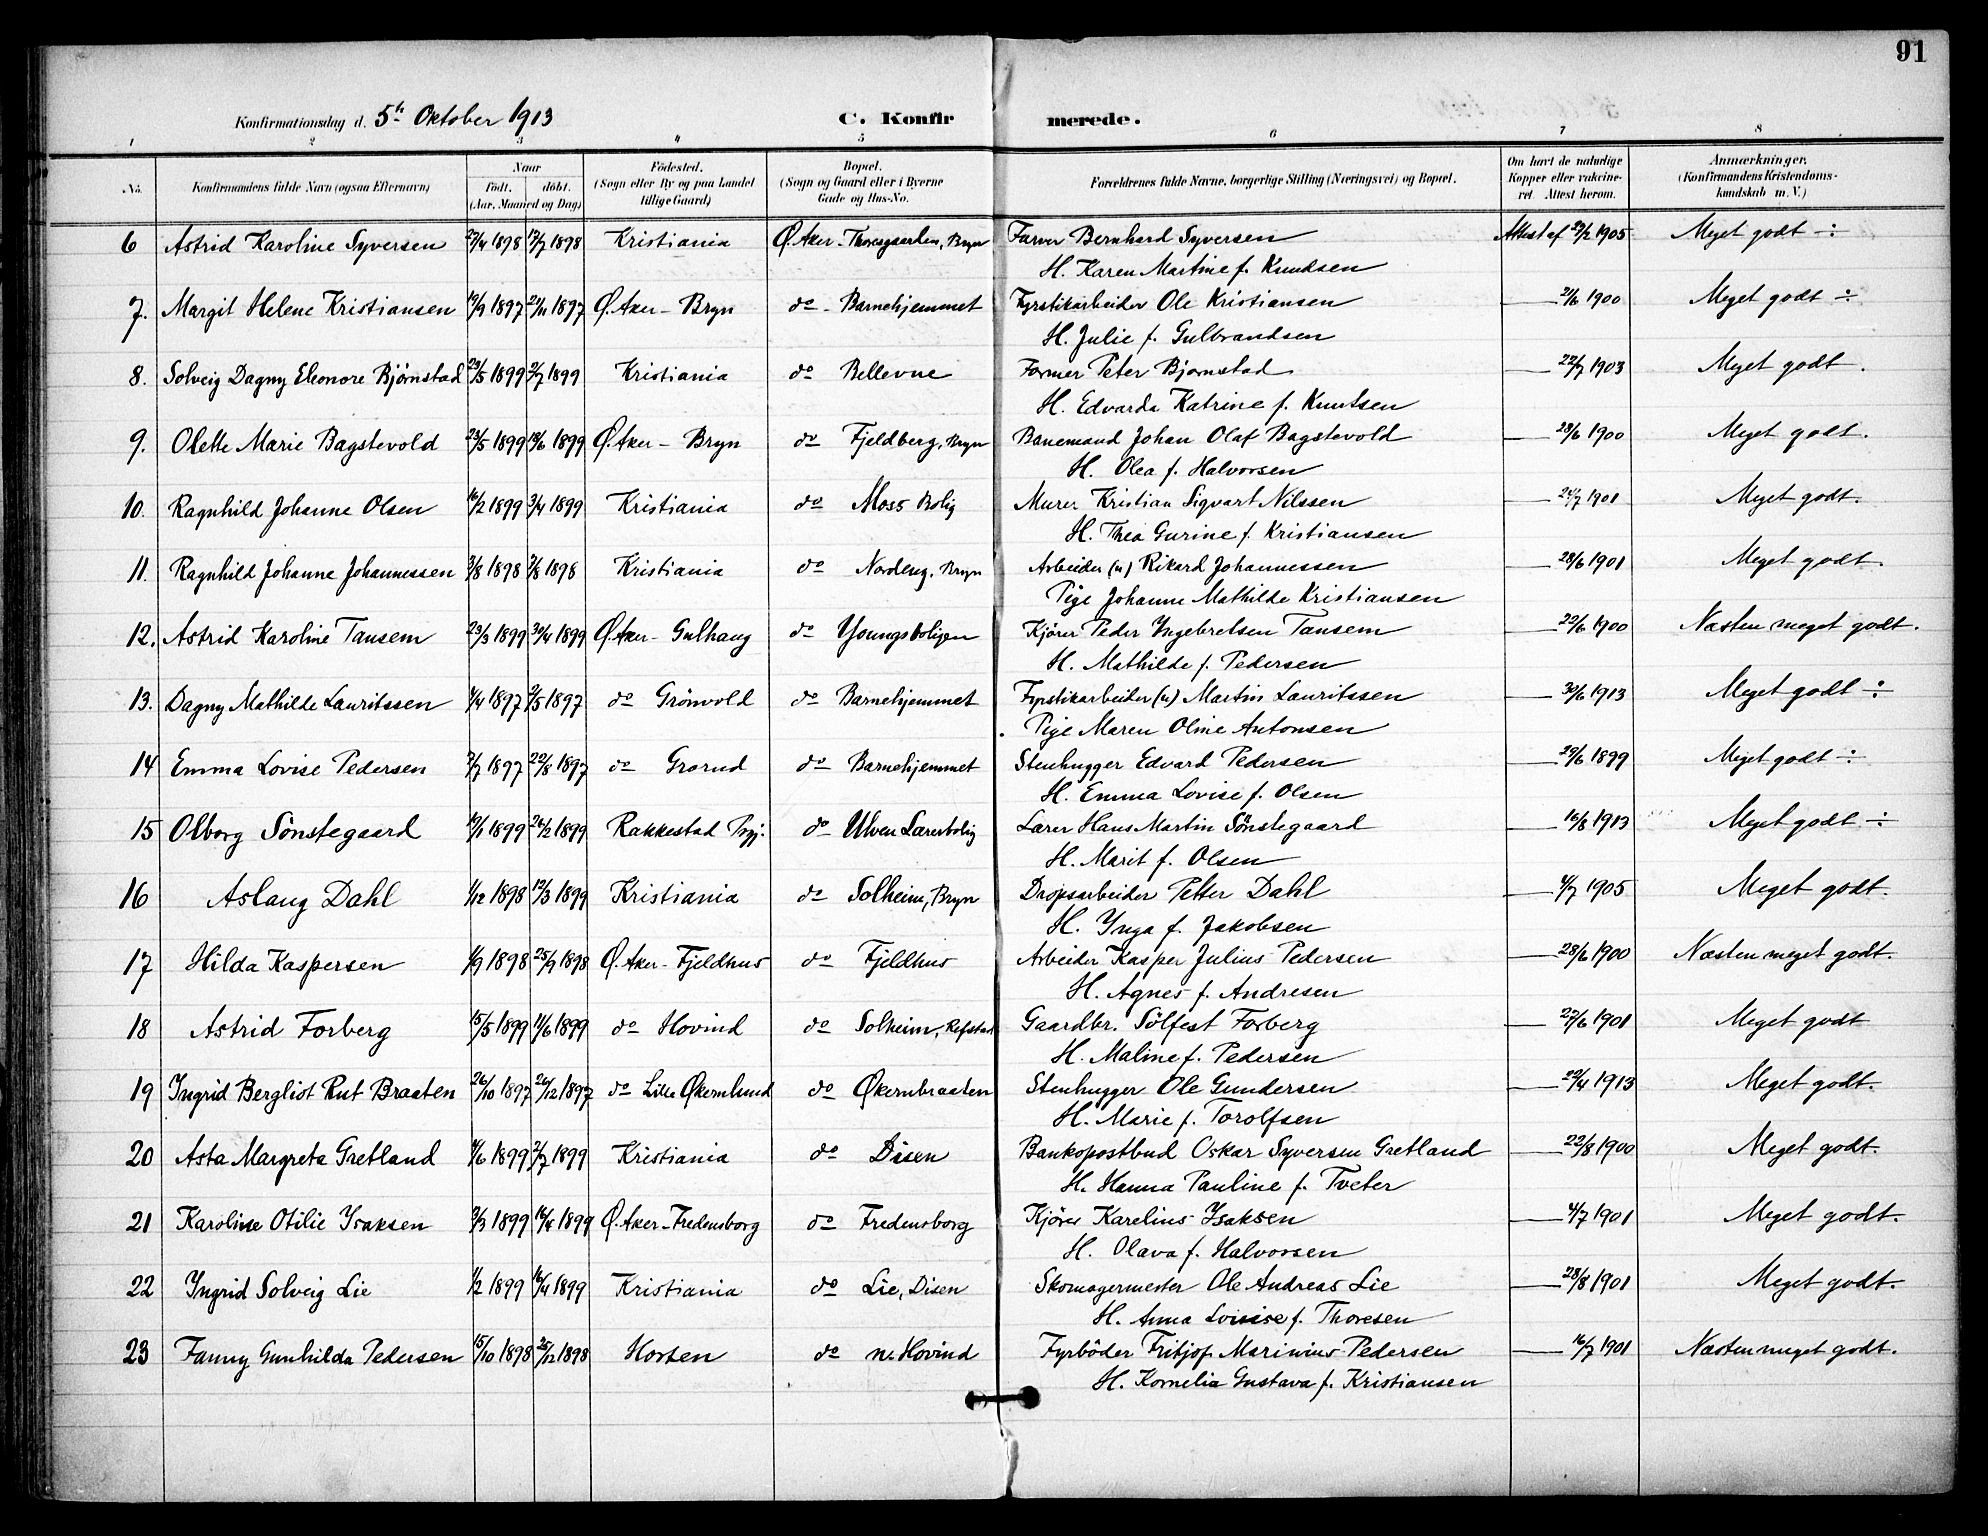 91
Konfirmationsdag d. 5te Oktober 1913 C. Konfirmerede.
1 2 3 4 5 6 7 8
No. Konfirmandens fulde Navn (ogsaa Efternavn) Naar født. døbt. (Aar, Maaned og Dag) Fødested. (Sogn eller By og paa Landet tillige Gaard) Bopæl. (Sogn og Gaard eller i Byerne Gade og Hus-No. Forældrenes fulde Navne, borgerlige Stilling (Næringsvei) og Bopæl. Om havt de naturlige Kopper eller vakcineret. Attest herom. Anmærkninger. (Konfirmandens Kristendomskundskab m. V.)
6 Astrid Karoline Syversen 27/4 1898 17/7 1898 Kristiania Ø. Aker - Thoresgaarden, Bryn Farver Bernhard Syversen Attest af 1905 Meget godt ÷
H. Karen Martine f. Knudsen
7. Margit Helene Kristiansen 19/9 1897 21/11 1897 Ø. Aker - Bryn do - Barnehjemmet Fyrstikarbeider Ole Kristiansen — 21/6 1900 Meget godt ÷
H. Julie f. Gulbrandsen
8. Solveig Dagny Eleonore Bjørnstad 29/5 1899 2/7 1899 Kristiania do Bellevue Former Peter Bjørnstad — 22/7 1903 Meget godt.
H. Edvarda Katrine f. Knutsen
9. Olette Marie Bagstevold 23/5 1899 18/6 1899 Ø. Aker - Bryn do Fjeldberg, Bryn Banemand Johan Olaf Bagstevold — 28/6 1900 Meget godt.
H. Olea f. Halvorsen
10. Ragnhild Johanne Olsen 16/2 1899 3/4 1899 Kristiania do Moss Bolig Murer Kristian Sigvart Nilssen — 24/7 1901 Meget godt.
H. Thea Gurine f. Kristiansen
11. Ragnhild Johanne Johannessen 2/8 1898 1898 Kristiania do Nordeng, Bryn Arbeider (u) Rikard Johannessen — 28/6 1901 Meget godt.
Pige Johanne Mathilde Kristiansen
12. Astrid Karoline Tansem 23/3 1899 30/4 1899 Ø. Aker - Gulhaug do Youngsboligen Kjører Peder Ingebretsen Tansem — 22/6 1900 Næsten meget godt.
H. Mathilde f. Pedersen
13. Dagny Mathilde Lauritssen 1/4 1897 9/5 1897 do Grönvold do Barnehjemmet Fyrstikarbeider (u) Martin Lauritssen — 30/6 1913 Meget godt ÷
Pige Maren Oline Antonsen
14 Emma Lovise Pedersen 2/7 1897 22/8 1897 do Grorud do Barnehjemmet Stenhugger Edvard Pedersen — 29/6 1899 Meget godt ÷
H. Emma Lovise f. Olsen
15 Olborg Sönstegaard 19/1 1899 26/2 1899 Rakkestad Prgj. do Ulven Lærerbolig Lærer Hans Martin Sönstegaard — 16/8 1913 Meget godt ÷
H. Marit f. Olsen
16 Aslaug Dahl 1/12 1898 12/3 1899 Kristiania do Solheim, Bryn Dropsarbeider Petter Dahl — 4/7 1905 Meget godt.
H. Inga f. Jakobsen
17 Hilda Kaspersen 1/9 1898 25/9 1898 Ø. Aker - Fjeldhus do Fjeldhus Arbeider Kasper Julius Pedersen — 28/6 1900 Næsten meget godt.
H. Agnes f. Andresen
18 Astrid Forberg 15/5 1899 11/6 1899 do Hovind do Solheim, Refstad Gaardbr. Sölfest Forberg — 27/6 1901 Meget godt
H. Maline f. Pedersen
19 Ingrid Bergliot Rut Braaten 26/10 1897 26/12 1897 do Lille Økernlund do Økernbraaten Stenhugger Ole Gundersen — 22/4 1913 Meget godt.
H. Marie f. Torolfsen
20 Asta Margreta Gretland 4/6 1899 2/7 1899 Kristiania do Disen Bankopostbud Oskar Syversen Gretland — 22/8 1900 Meget godt.
H. Hanna Pauline f. Tveter
21 Karoline Otilie Isaksen 2/3 1899 16/4 1899 Ø. Aker - Fredensborg do Fredensborg Kjører Karelius Isaksen — 4/7 1901 Meget godt.
H. Olava f. Halvorsen
22 Ingrid Solveig Lie 1/2 1899 16/4 1899 Kristiania do Lie, Disen Skomagermester Ole Andreas Lie — 28/8 1901 Meget godt.
H. Anna Lovise f. Thoresen
23 Fanny Gunhilda Pedersen 15/10 1898 25/12 1898 Horten do n. Hovind Fyrböder Fritjof Marinius Pedersen — 16/7 1901 Næsten meget godt.
H. Kornelia Gustava f. Kristiansen